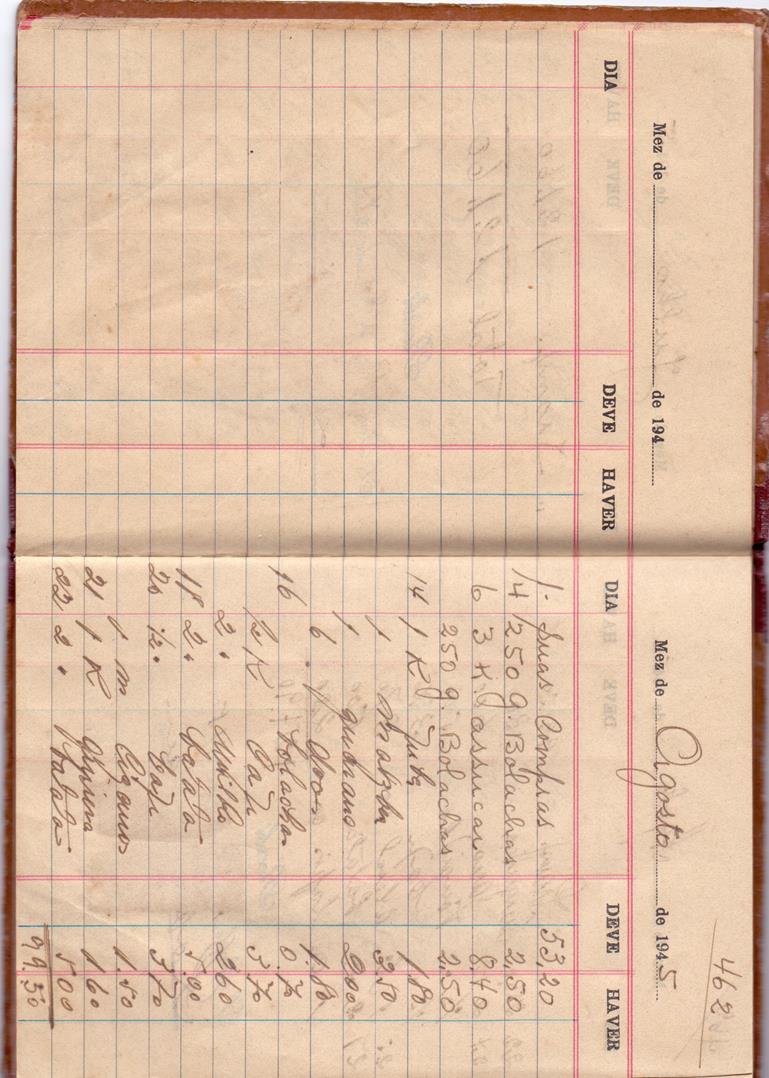 Mez de de 194
DIA DEVE HAVER
462
Mez de Agosto de 1945
DIA DEVE HAVER
1. Suas Compras 53,20
4 250 g. Bolachas 2,50
6 3 K. assucar 8,40
250 g. Bolachas 2,50
14 1 K 1,80
1 3.50
1 2.00
6 1.80
16 Bolachas 0.70
1/2 K Café 3.70
2 2.60
18 2. Batata 5.00
20 1/2. Café 3.70
1 m Cigarros 1.50
21 1 K 1.60
22 2. Batata 5.00
99.50